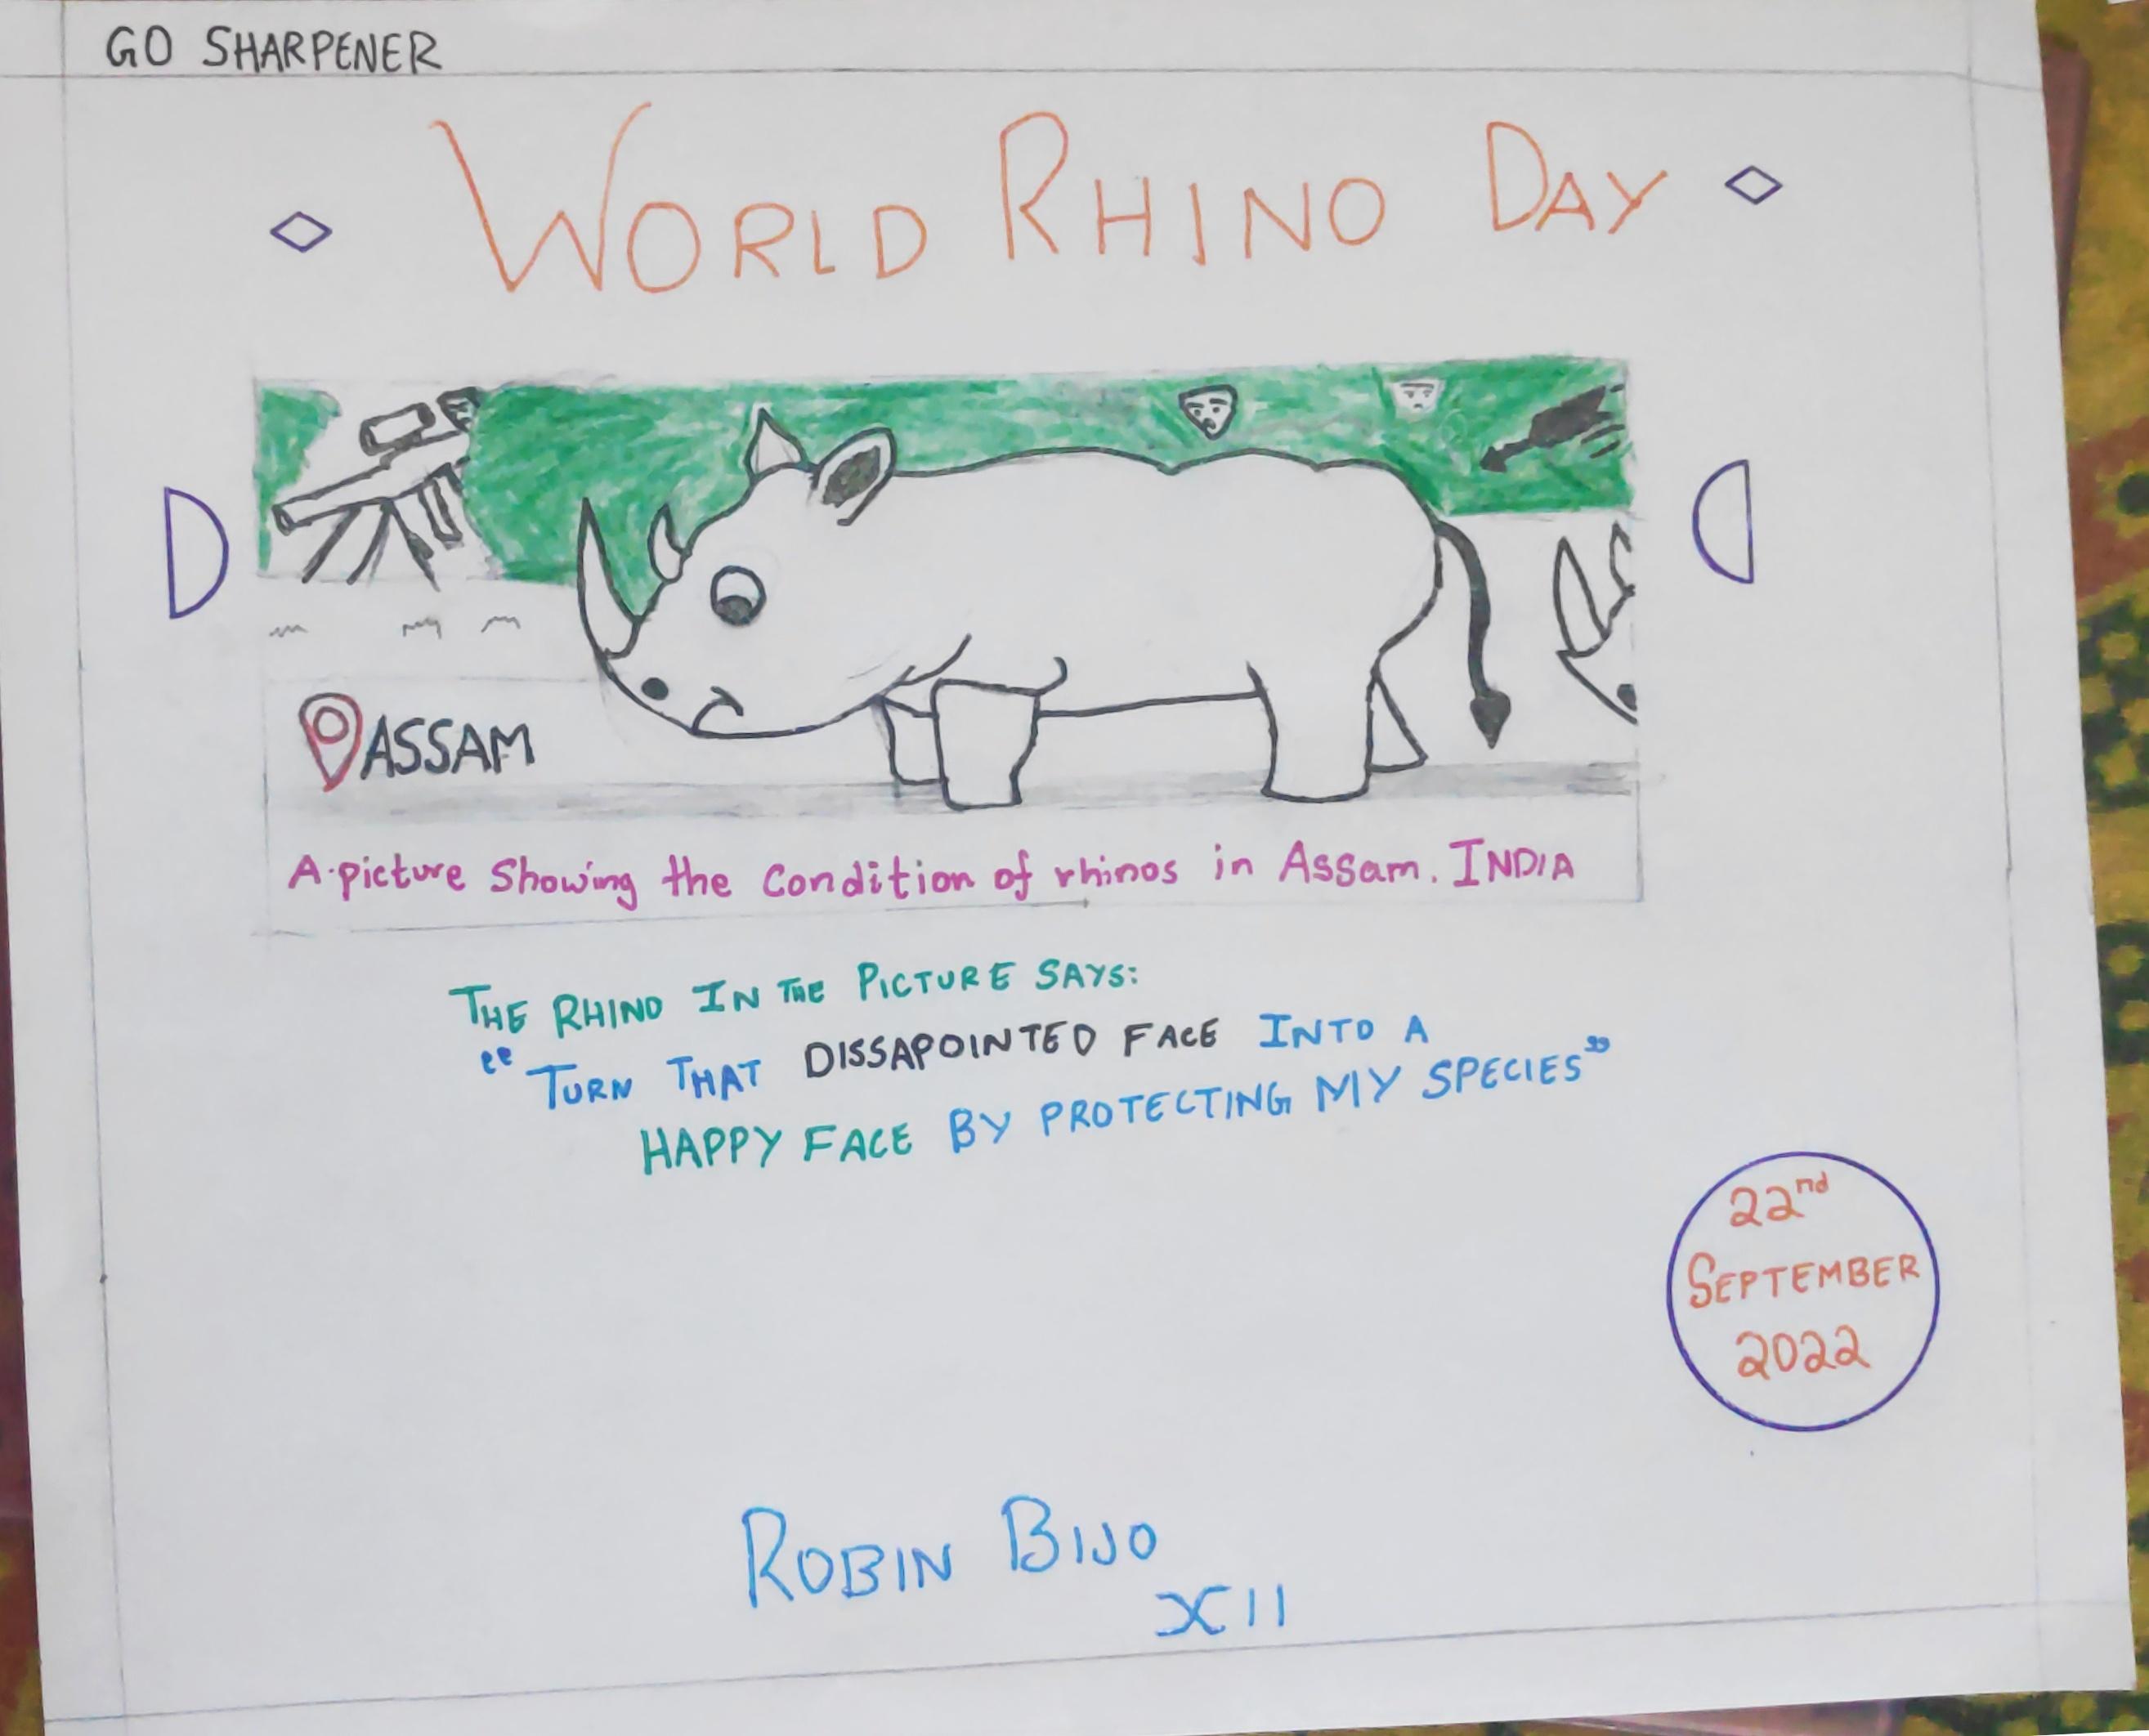 GO SHARPENER
WORLD RHINO DAY
ASSAM
A picture Showing the Condition of rhinos in Assam. INDIA
THE RHINO IN THE PICTURE SAYS:
"TURN THAT DISSAPOINTED FACE INTO A
HAPPY FACE BY PROTECTING MY SPECIES"
22nd
SEPTEMBER
2022
ROBIN BIJO
XII